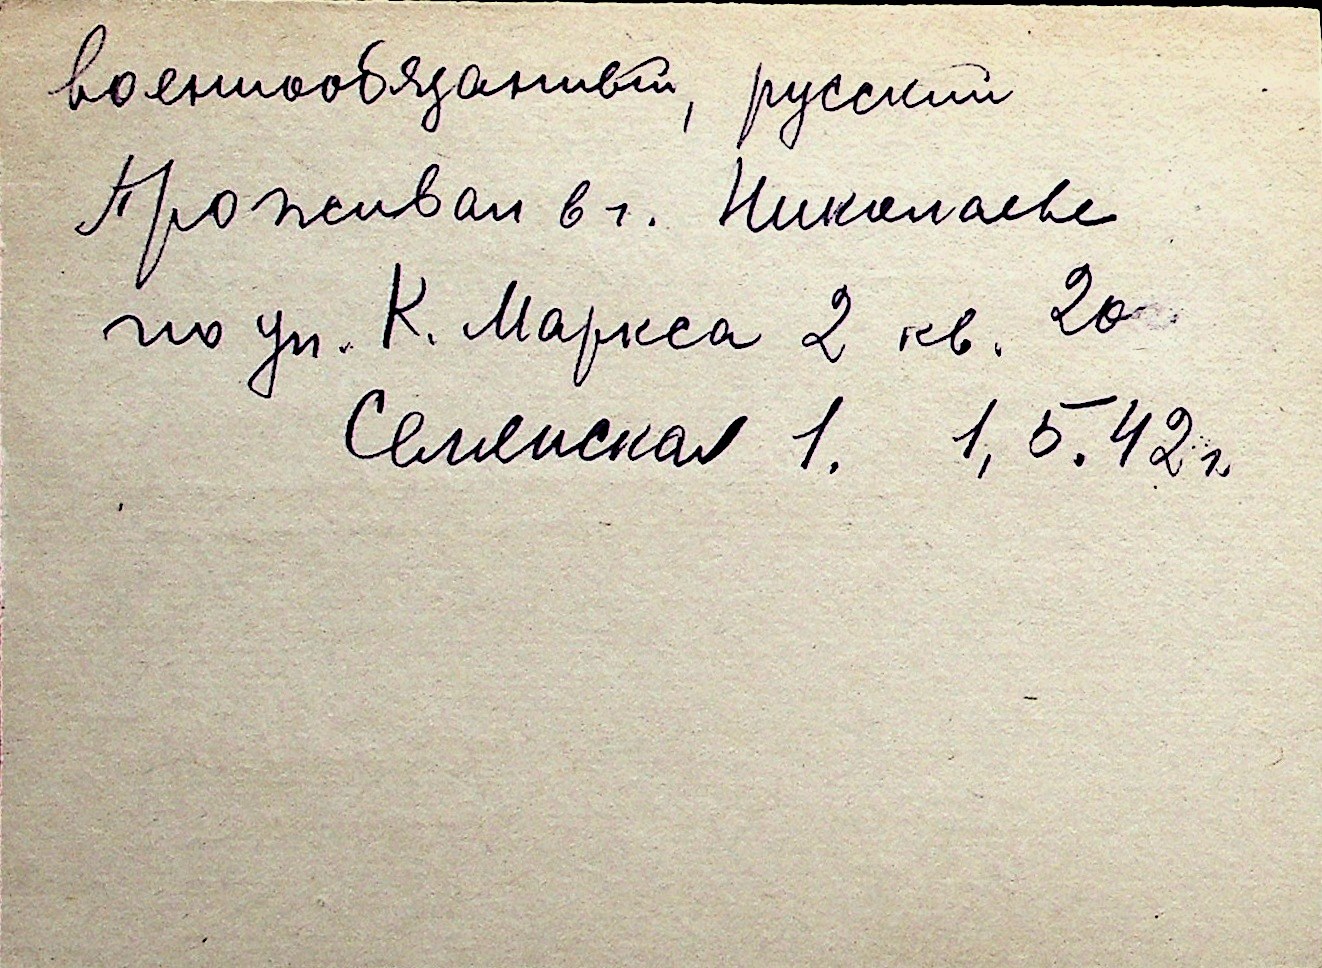 военнообязанный, русский
Проживал в г. Николаеве
по ул. К. Маркса 2 кв. 20
1. 1, 5. 42 г